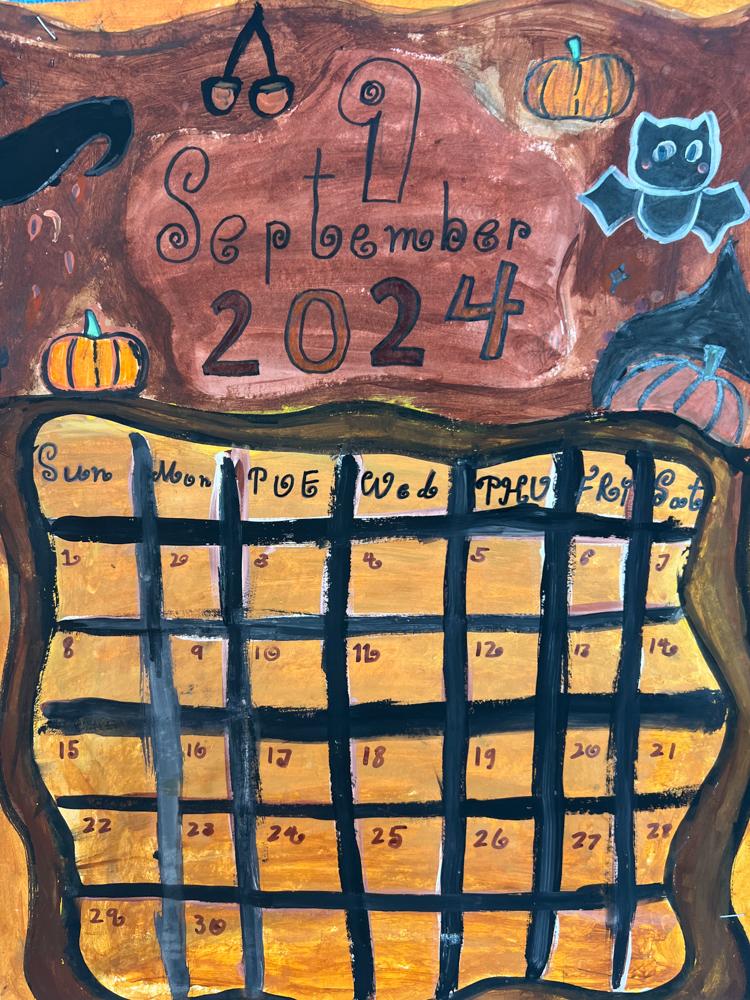 9
September
2024
Sun Mon TUE Wed THU FRI Sat
1 2 3 4 5 6 7
8 9 10 11 12 13 14
15 16 17 18 19 20 21
22 23 24 25 26 27 28
29 30